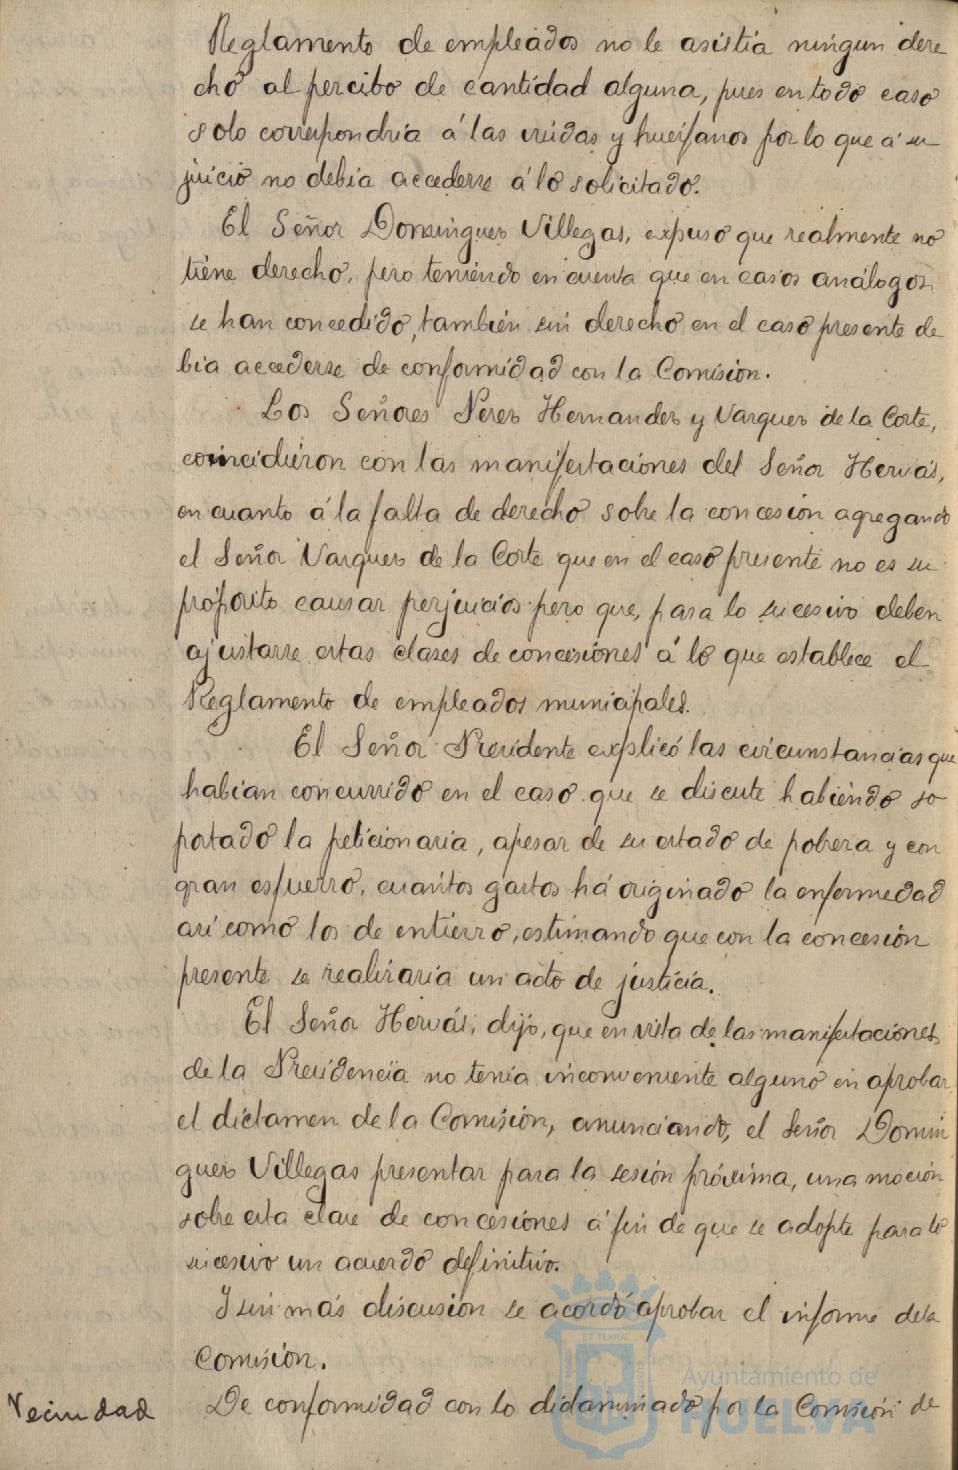 Reglamento de empleados no le asistia ningun dere
cho al percibo de cantidad alguna, pues en todo caso
solo correspondria á las viudas y huérfanos por lo que á su
juicio no debia accederse á lo solicitado.
El Señor Dominguez Villegas, expuso que realmente no
tiene derecho, pero teniendo en cuenta que en casos análogos
se han concedido, también sin derecho en el caso presente de
bia accederse de conformidad con la Comision.
Los Señores Perez Hernandez y Vazquez de la Corte,
coincidieron con las manifestaciones del Señor Hervás,
en cuanto á la falta de derecho sobre la concesion agregando
el Señor Vazquez de la Corte que en el caso presente no es su
proposito causar perjuicios pero que, para lo sucesivo deben
ajustarse estas clases de concesiones á lo que establece el
Reglamento de empleados municipales.
El Señor Presidente explicó las circunstancias que
habian concurrido en el caso que se discute habiendo so
portado la peticionaria, apesar de su estado de pobreza y con
gran esfuerzo, cuantos gastos há originado la enfermedad
asi como los de entierro, estimando que con la concesión
presente se realizaria un acto de justicia.
El Señor Hervás, dijo, que en vista de las manifestaciones
de la Presidencia no tenia inconveniente alguno en aprobar
el dictamen de la Comision, anunciando, el Señor Domin
guez Villegas presentar para la sesión próxima, una moción
sobre esta clase de concesiones á fin de que se adopte para lo
sucesivo un acuerdo definitivo.
Y sin más discusion se acordó aprobar el informe de la
Comision.
Vecindad De conformidad con lo dictaminado por la Comisión de
ET TERRAE
Ayuntamiento de
HUELVA